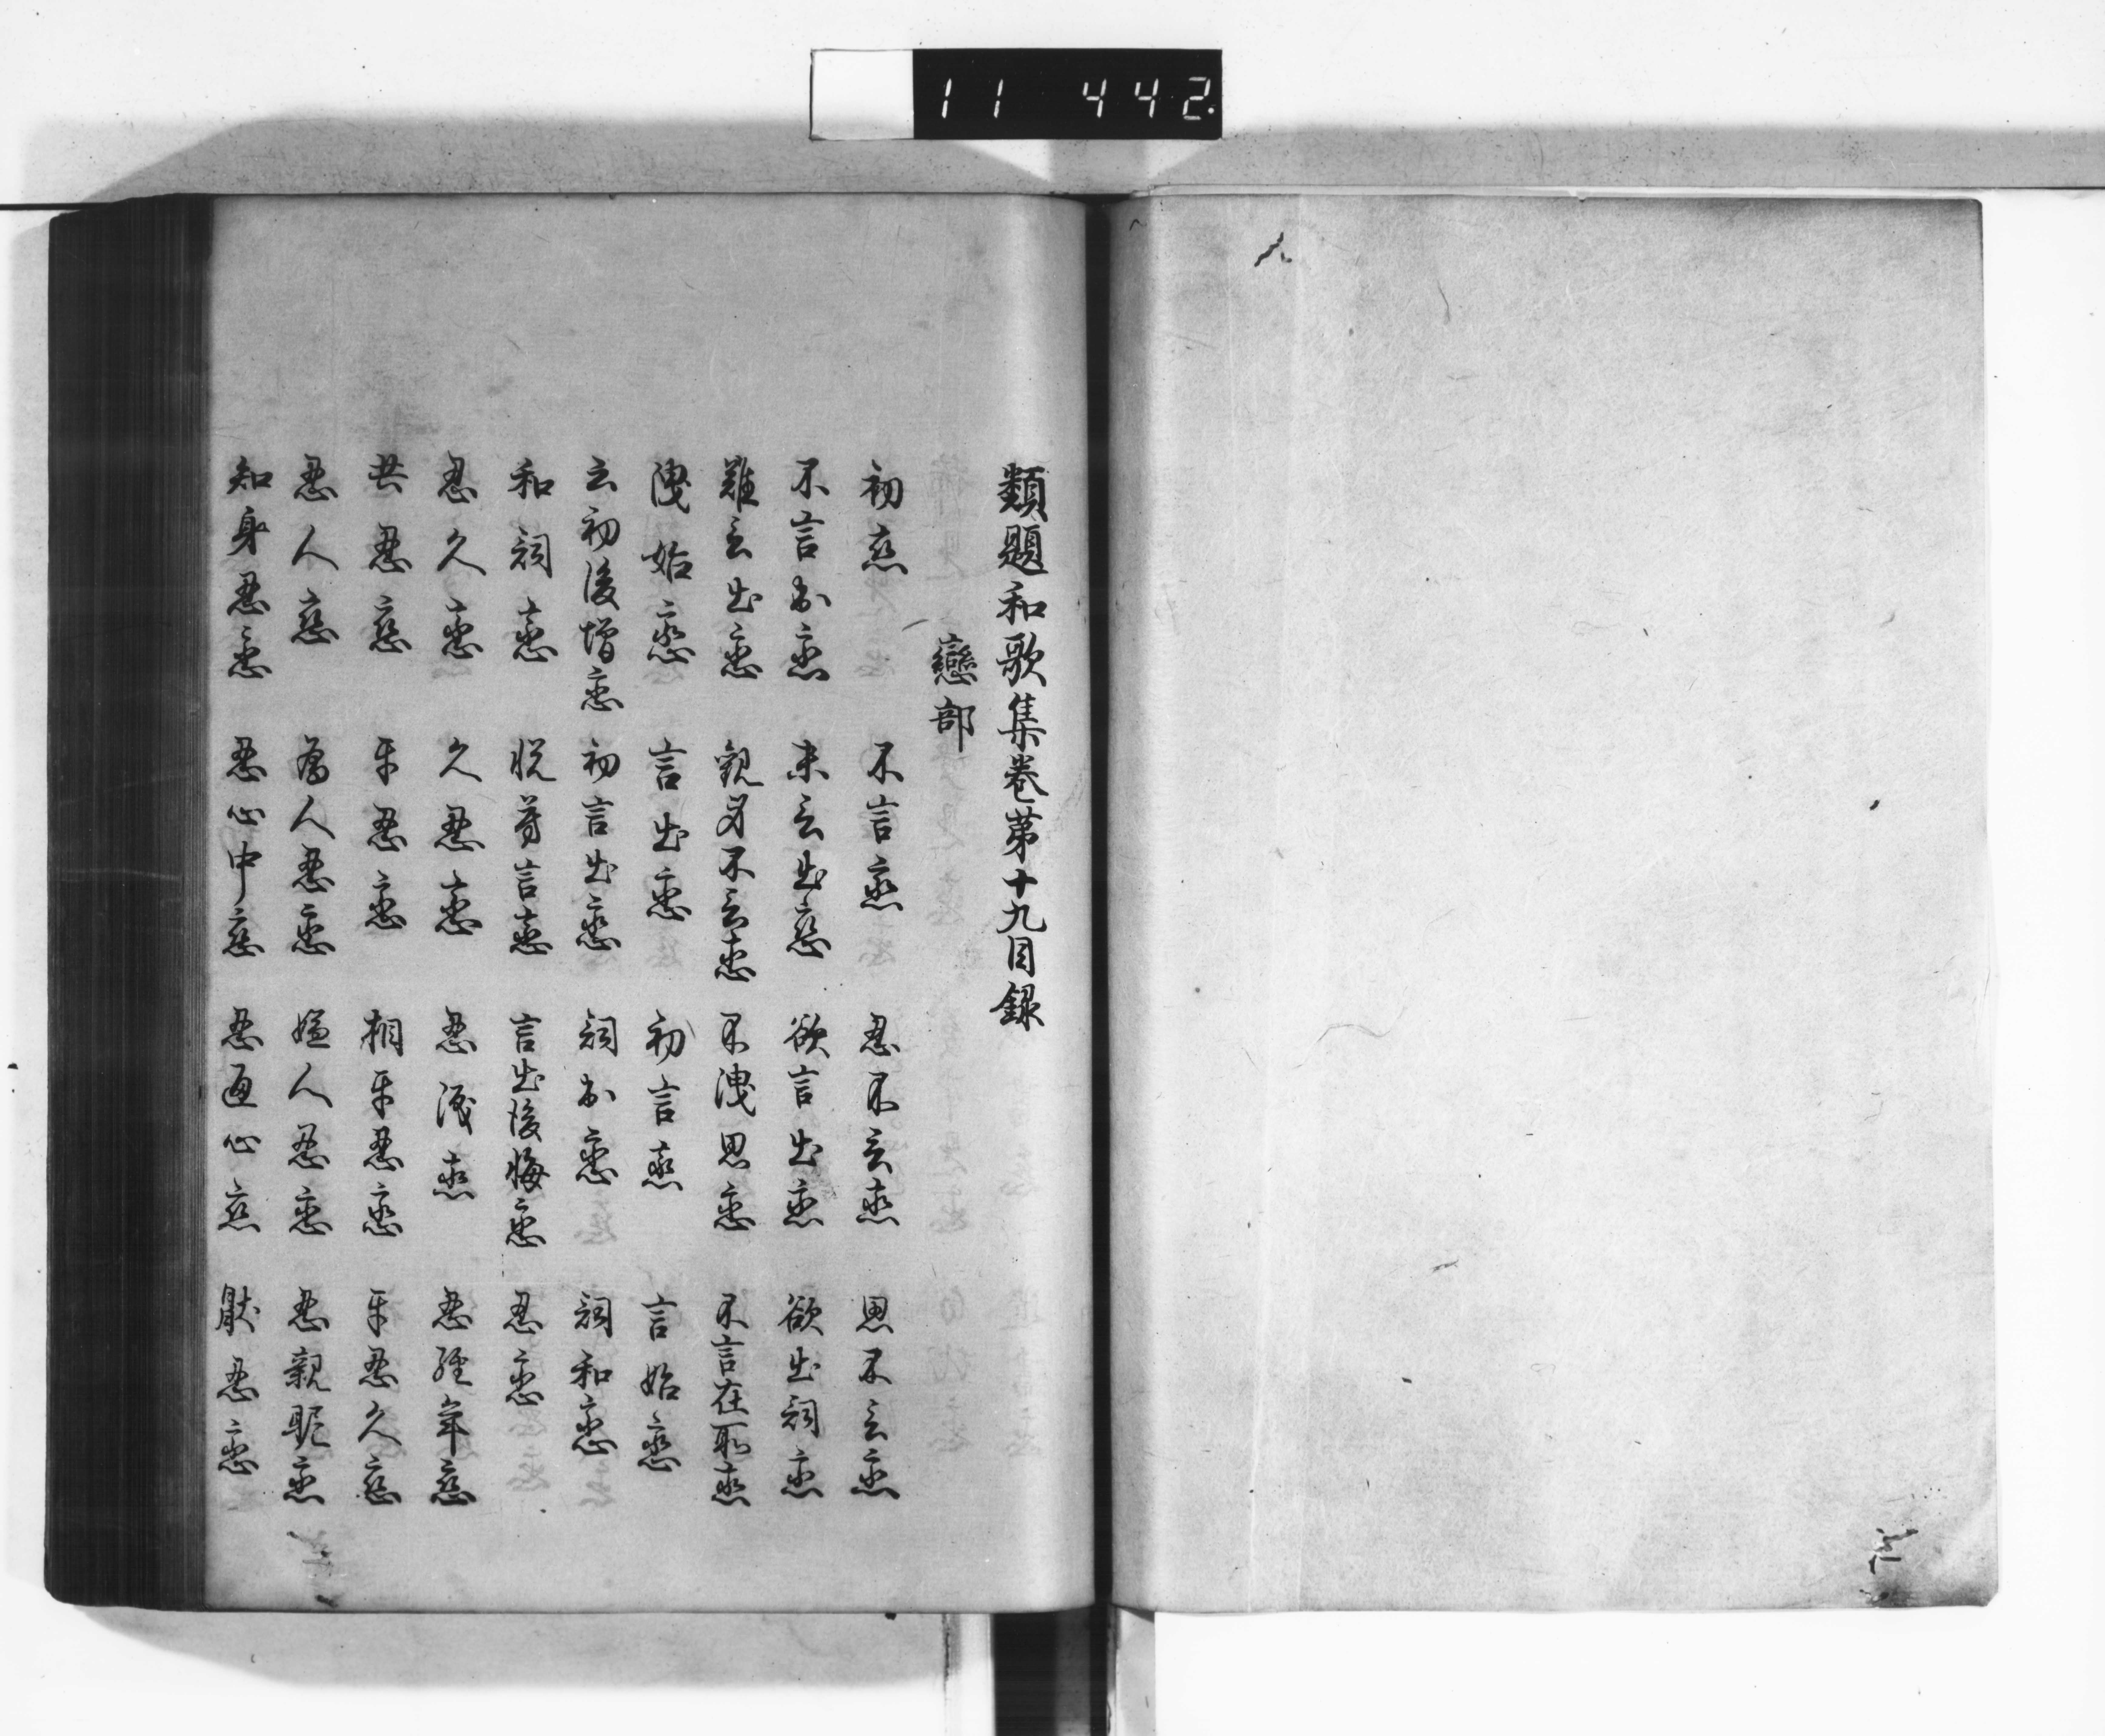 11 442
類題和歌集巻第十九目録
戀部
初恋 不言恋 忍不言恋 思不言恋
不言出恋 未言出恋 欲言出恋 欲出詞恋
難言出恋 親身不言恋 不洩思恋 不言在恥恋
洩始恋 言出恋 初言恋 言始恋
云初後増恋 初言出恋 詞出恋 詞和恋
和詞恋 言恋 言出後悔恋 忍恋
忍久恋 久忍恋 忍浅恋 忍経年恋
共忍恋 互忍恋 相互忍恋 互忍久恋
忍人恋 旧人忍恋 忍恋 忍親昵恋
知身忍恋 忍心中恋 忍通心恋 厭忍恋